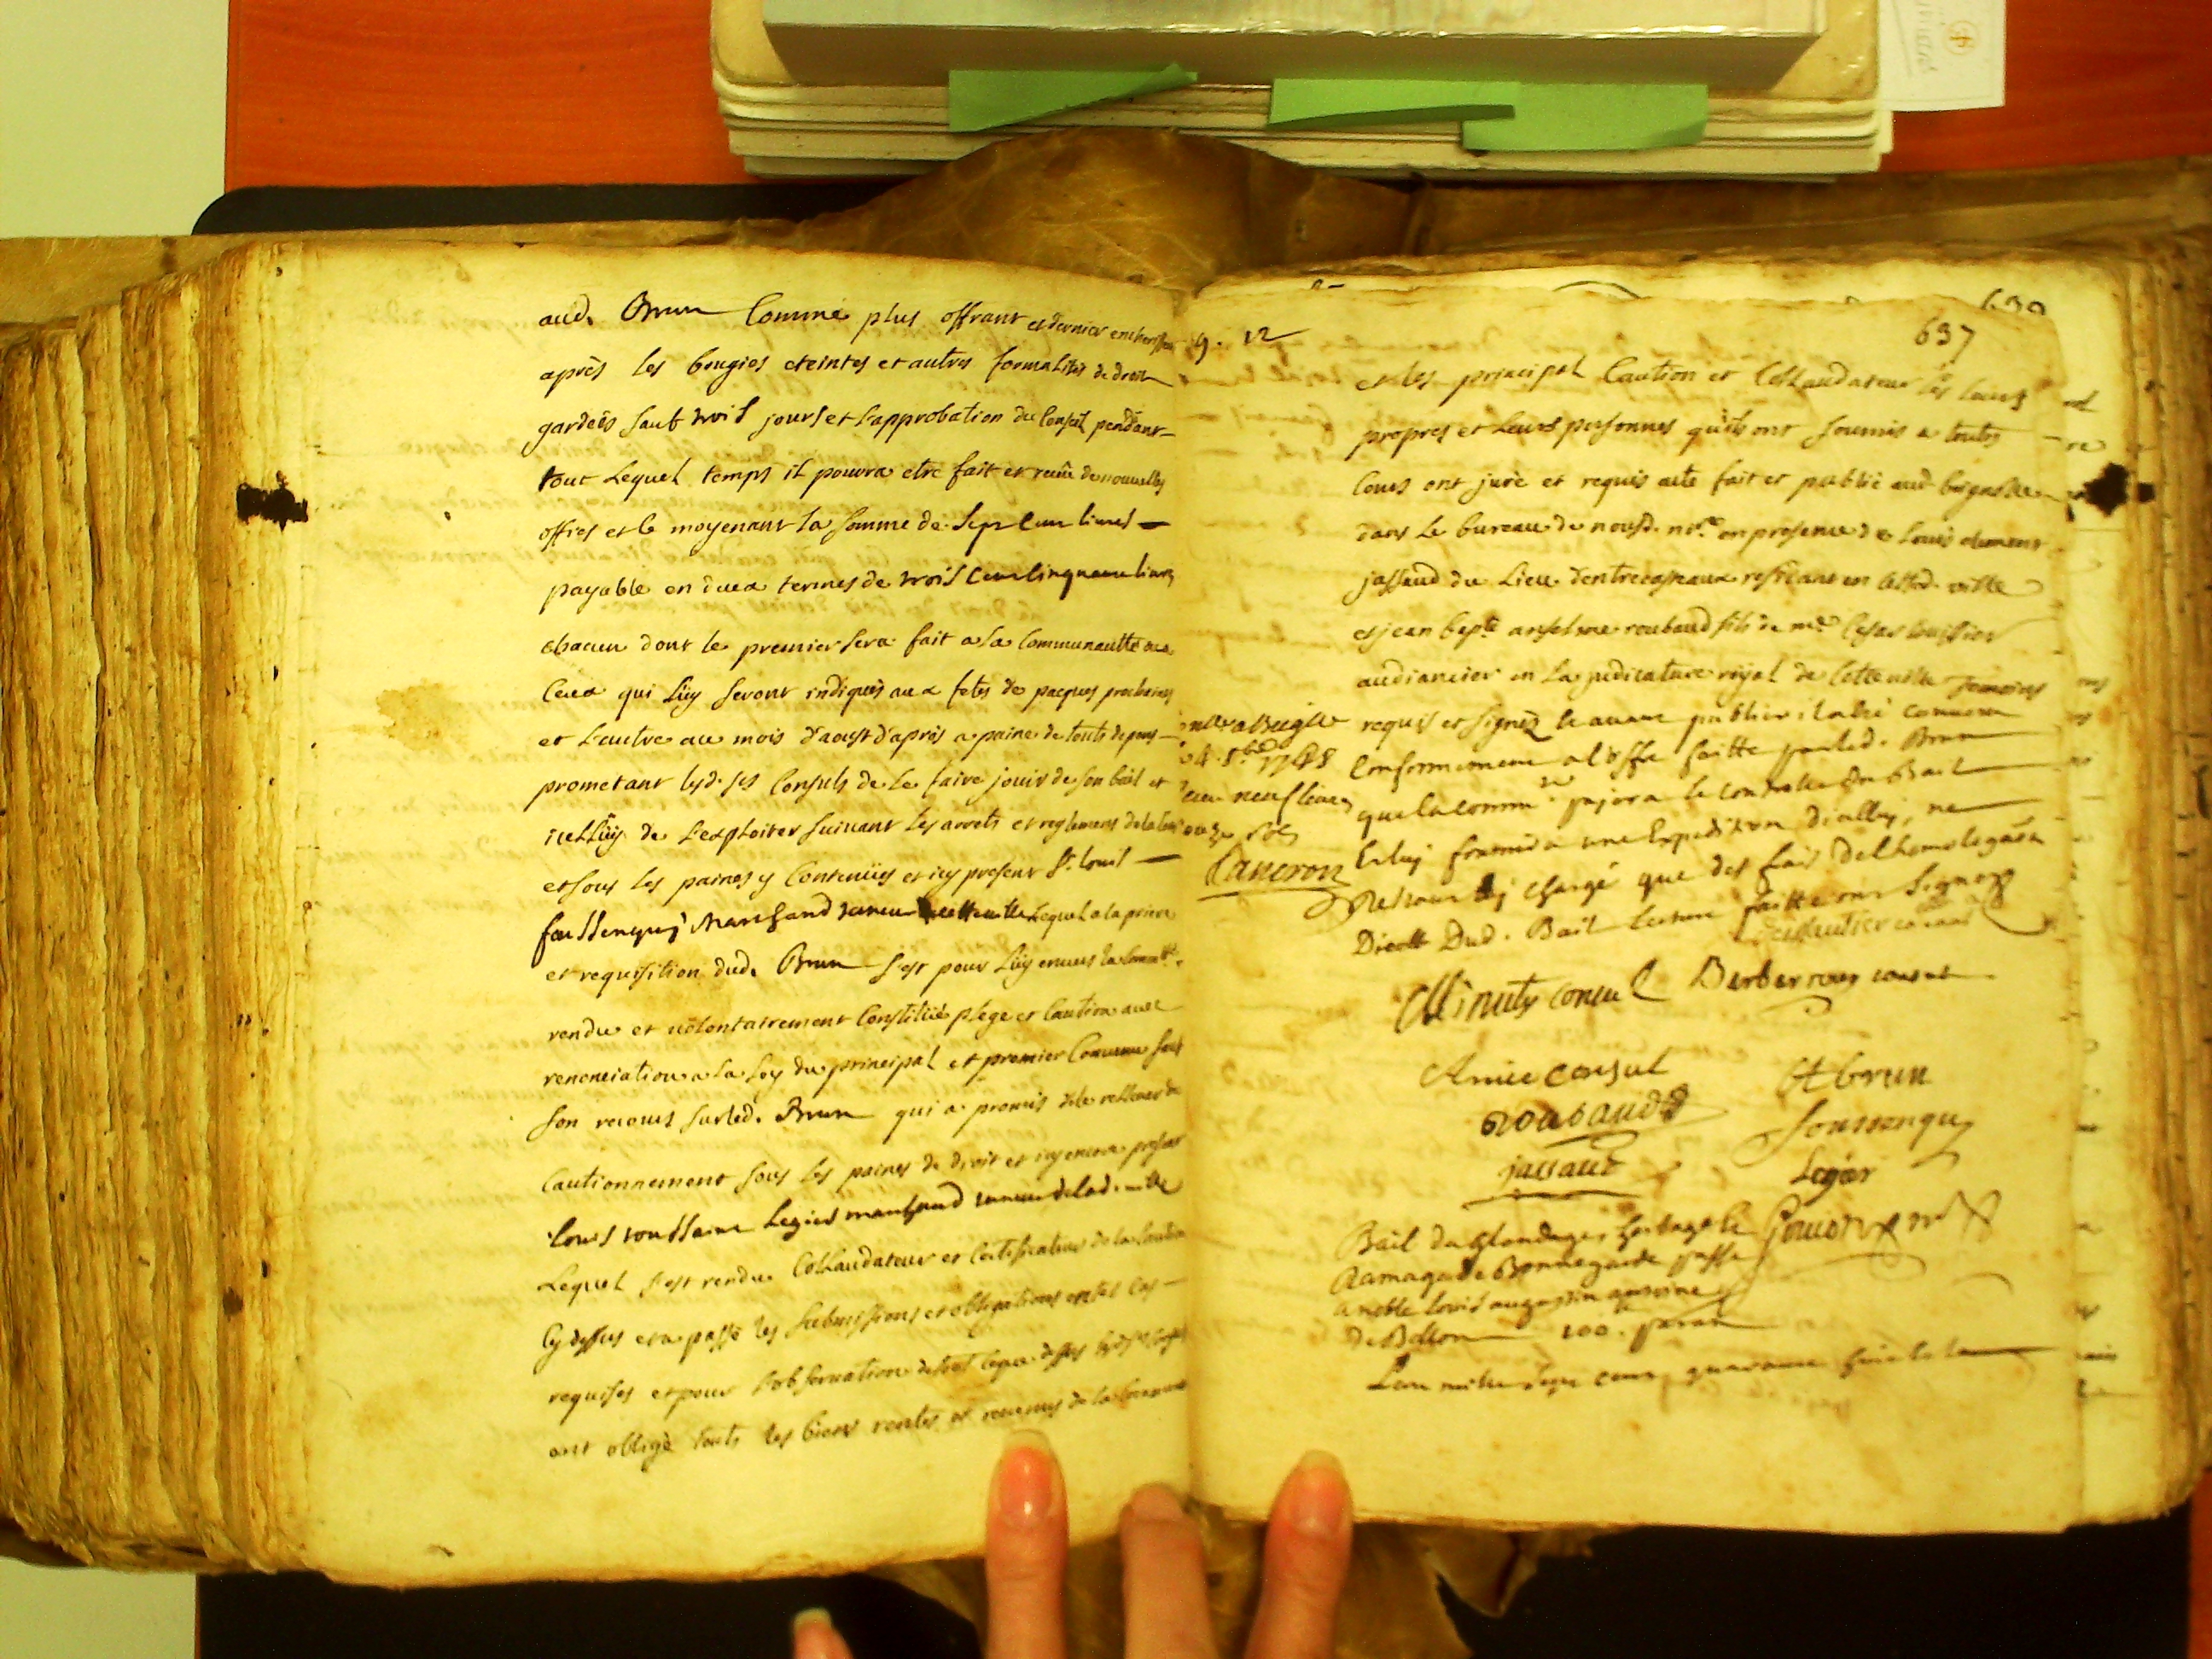 aud. Brun Comme plus offrant et dernier encherisseur
après les bougies eteintes et autres formalités de droit
gardeés sauf trois jours et l'approbation du conseil pendant
tout Lequel temps il pouvra etre fait et reçüe de nouvelles
offres et le moyenant la somme de sept cens livres
payable en deux termes de trois cens cinquante livres
chacun dont le premier sera fait a la Communautté ou a
Ceux qui Lüy seront indiqués aux fetes de pacques prochaines
et L'autre au mois d'aoust d'après a paine de touts depens
prometant lesd. srs Consuls de le faire jouir de son bail et
icelLüy de L'exploiter suivant les arrets et reglemens de la Cour
et sous les paines y Contenües et icy present Sr. Louis
foussenquy Marchand Lequel a la priere
et requisition dud. Brun s'est pour Lüy envers la commté.
rendu et vollontairement Constitüé plege et Caution avec
renonciation a la Loy du principal et premier Convenu sauf
son recours sur led. Brun qui a promis de le rellever du
Cautionnement sous les paines de droit et icy encore present
Louis toussaint Legier marchand taneur de lad. ville
Lequel s'est rendu Collaudateur et Certificateur de la Caution
Cy dessus et a passé les submissions et obligations en tel cas
requises et pour L'observation de tout ce que dessus
ont obligé touts les biens rentes et revenus de la Communauté
9. 12
637
et les principal Caution et Collaudateur les leurs
propres et Leurs personnes qu'ils ont soumis a toutes
Cours ont juré et requis acte fait et publié aud brignolle
dans Le bureau de nousd. nre. en presence de Louis clement
jassaud du Lieu d'entrecasteaux resident en cetted. ville
et jean bapte anselme roubaud fils de me. Cesar huissier
audiancier en La judicature royal de Cette ville temoins
requis et signés le avant publier il a été convenu
Conformement a l'offre faitte par led. Brun
que la commté. payera le controlle du Bail
Et luy fournira une Expedition d'icelluy, ne
chargé que des frais de l'homologaon
Dicelt Dud. Bail lecture faitte ont signez
a Brignolle
4. 8bre 1748
neuf livres
sols
Cancron
Minuty consul
Barbarroux consul
Amic consul
St brun
roubaud
foussenquy
jassaud
Legier
Bail du Glandage, herbage &
Ramage de Bonnegarde passé
a noble Louis augustin
De Bellon 100. par an
L'an mille sept cens quarante huit et le